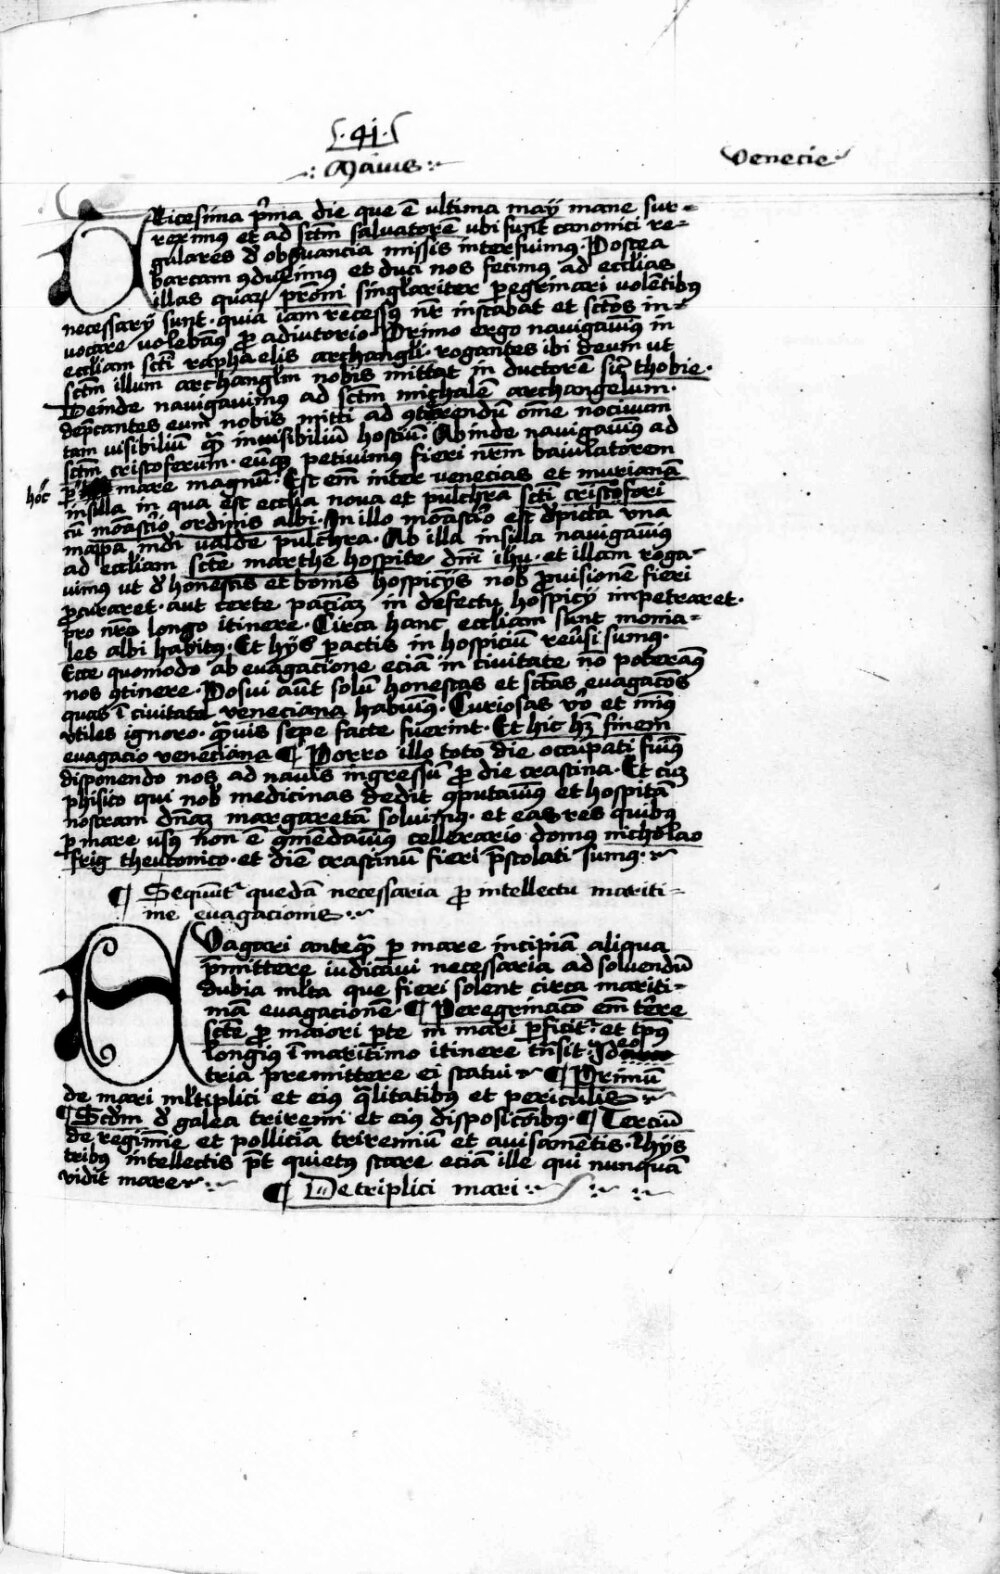 ·41·
Maius
Venecie
TRicesima p̄rma die que ē ultima maÿ mane sur-
reximus et ad sctm̄ salvatorē ubi sunt canonici re-
gulares d̄ obs̄uancia missis interfuimus· Postea
barcam ꝯduximus et duci nos fecimus ad ecclīas
illas quaꝝ pr̄oni singl̄ariter peregrinari volētibus
necessarÿ sunt· quia iam recessus nr̄ instabat et sctōs in-
vocare volebam̄ꝰ pro adiutorio· Primo ergo navigauim̄ꝰ in
eccl̄iam sctī raphaelis archangl̄i· rogantes ibi deum ut
sctm̄ illum archangl̄m nobis mittat in ductorē sic̄ thobie·
Deinde navigauimus ad sctm̄ michaelē archangelum·
dep̄cantes eum nobis mitti ad ꝯterendū om̄e nocivum
tam visibiliū quā invisibiliū hostiū· Abinde navigauim̄ꝰ ad
sctm̄ cristoferum· eūqꝫ petivimus fieri nr̄m baiulatorem
hoc
p mare magnū· Est em̄ inter venecias et murianā
insula in qua est eccl̄ia nova et pulchra sctī cristofori
cū moāstr̄io ordinis albi· In illo moāstr̄io est d̄picta una
mappa mūdi valde pulchra· Ab illa insula navigauim̄ꝰ
ad eccl̄iam scte marthe hospite dn̄i ihū· et illam roga-
uimus ut d̄ honestis et bonis hospicÿs nob̄ provisionē fieri
procuraret· aut certe pacīaꝫ in defectu hospicÿ impetraret·
pro nr̄o longo itinere· Circa hanc eccl̄iam sunt monia-
les albi habitus· Et hÿs pactis in hospiciū reūsi sumꝰ·
Ecce quomodo ab evagacione eciā in civitate nō poteram̄ꝰ
nos ꝯtinere· Posui aūt solū honestas et sctās evagacōs
quas ī civitate veneciana habuim̄ꝰ· Curiosas v̄o et min̄ꝰ
utiles ignoro· quāvis sepe facte fuerint· Et hic hꝫ finem
evagacio veneciana ¶ Porro illo toto die occupati fuim̄ꝰ
disponendo nos ad navis ingressū pro die crastina· Et cuꝫ
phisico qui nob̄ medicinas dedit ꝯputauim̄ꝰ et hospitā
nostram dn̄aꝫ margaretā solvimus· et eas res quibus
p mare usus non ē ꝯmēdauim̄ꝰ cellerario domus nicholao
frig theutonico· et diē crastinū fieri p̄stolati sumꝰ·
¶ Sequūtʳ quedā necessaria pro intellectu mariti-
me evagacionis
EVagari anteqꝫ p mare incipiā aliqua
p̄mittere iudicavi necessaria ad solvendū
dubia ml̄ta que fieri solent circa mariti-
mam evagacionē· ¶ Peregrinacō em̄ terre
scte pro maiori pte in mari pficitʳ· et tp̄us
longius ī maritimo itinere tn̄sit· Ideo
tria premittere ei statui ¶ Primū
de mari ml̄tiplici et eius qualitatibus et periculis
¶ Scdm̄ d̄ galea triremi et eius disposicōibus· ¶ Terciū
de regimīe et pollicia triremiū et avisamētis· Ihÿs
tribus intellectis p̄t quietus stare eciā ille qui nunquā
vidit mare
¶ De triplici mari